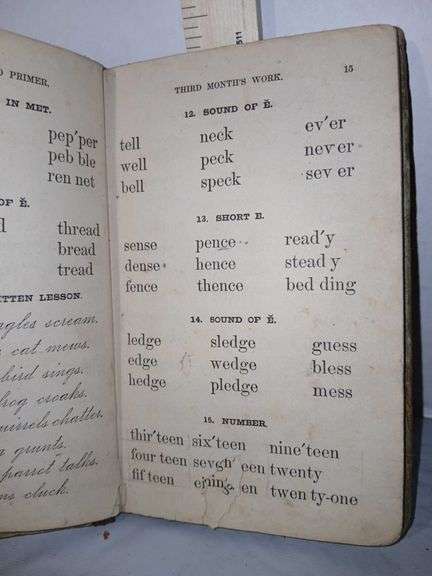 PRIMER.
IN MET.
pep′per
peb ble
ren net
OF Ĕ.
thread
bread
tread
LESSON.
scream.
cat mews.
bird sings.
croaks.
chatter.
grunts.
parrot talks.
cluck.
THIRD MONTH'S WORK. 15
12. SOUND OF Ĕ.
tell neck ev′er
well peck nev er
bell speck sev er
13. SHORT E.
sense pence read′y
dense hence stead y
fence thence bed ding
14. SOUND OF Ĕ.
ledge sledge guess
edge wedge bless
hedge pledge mess
15. NUMBER.
thir′teen six′teen nine′teen
four teen sev en twenty
fif teen en twen ty-one